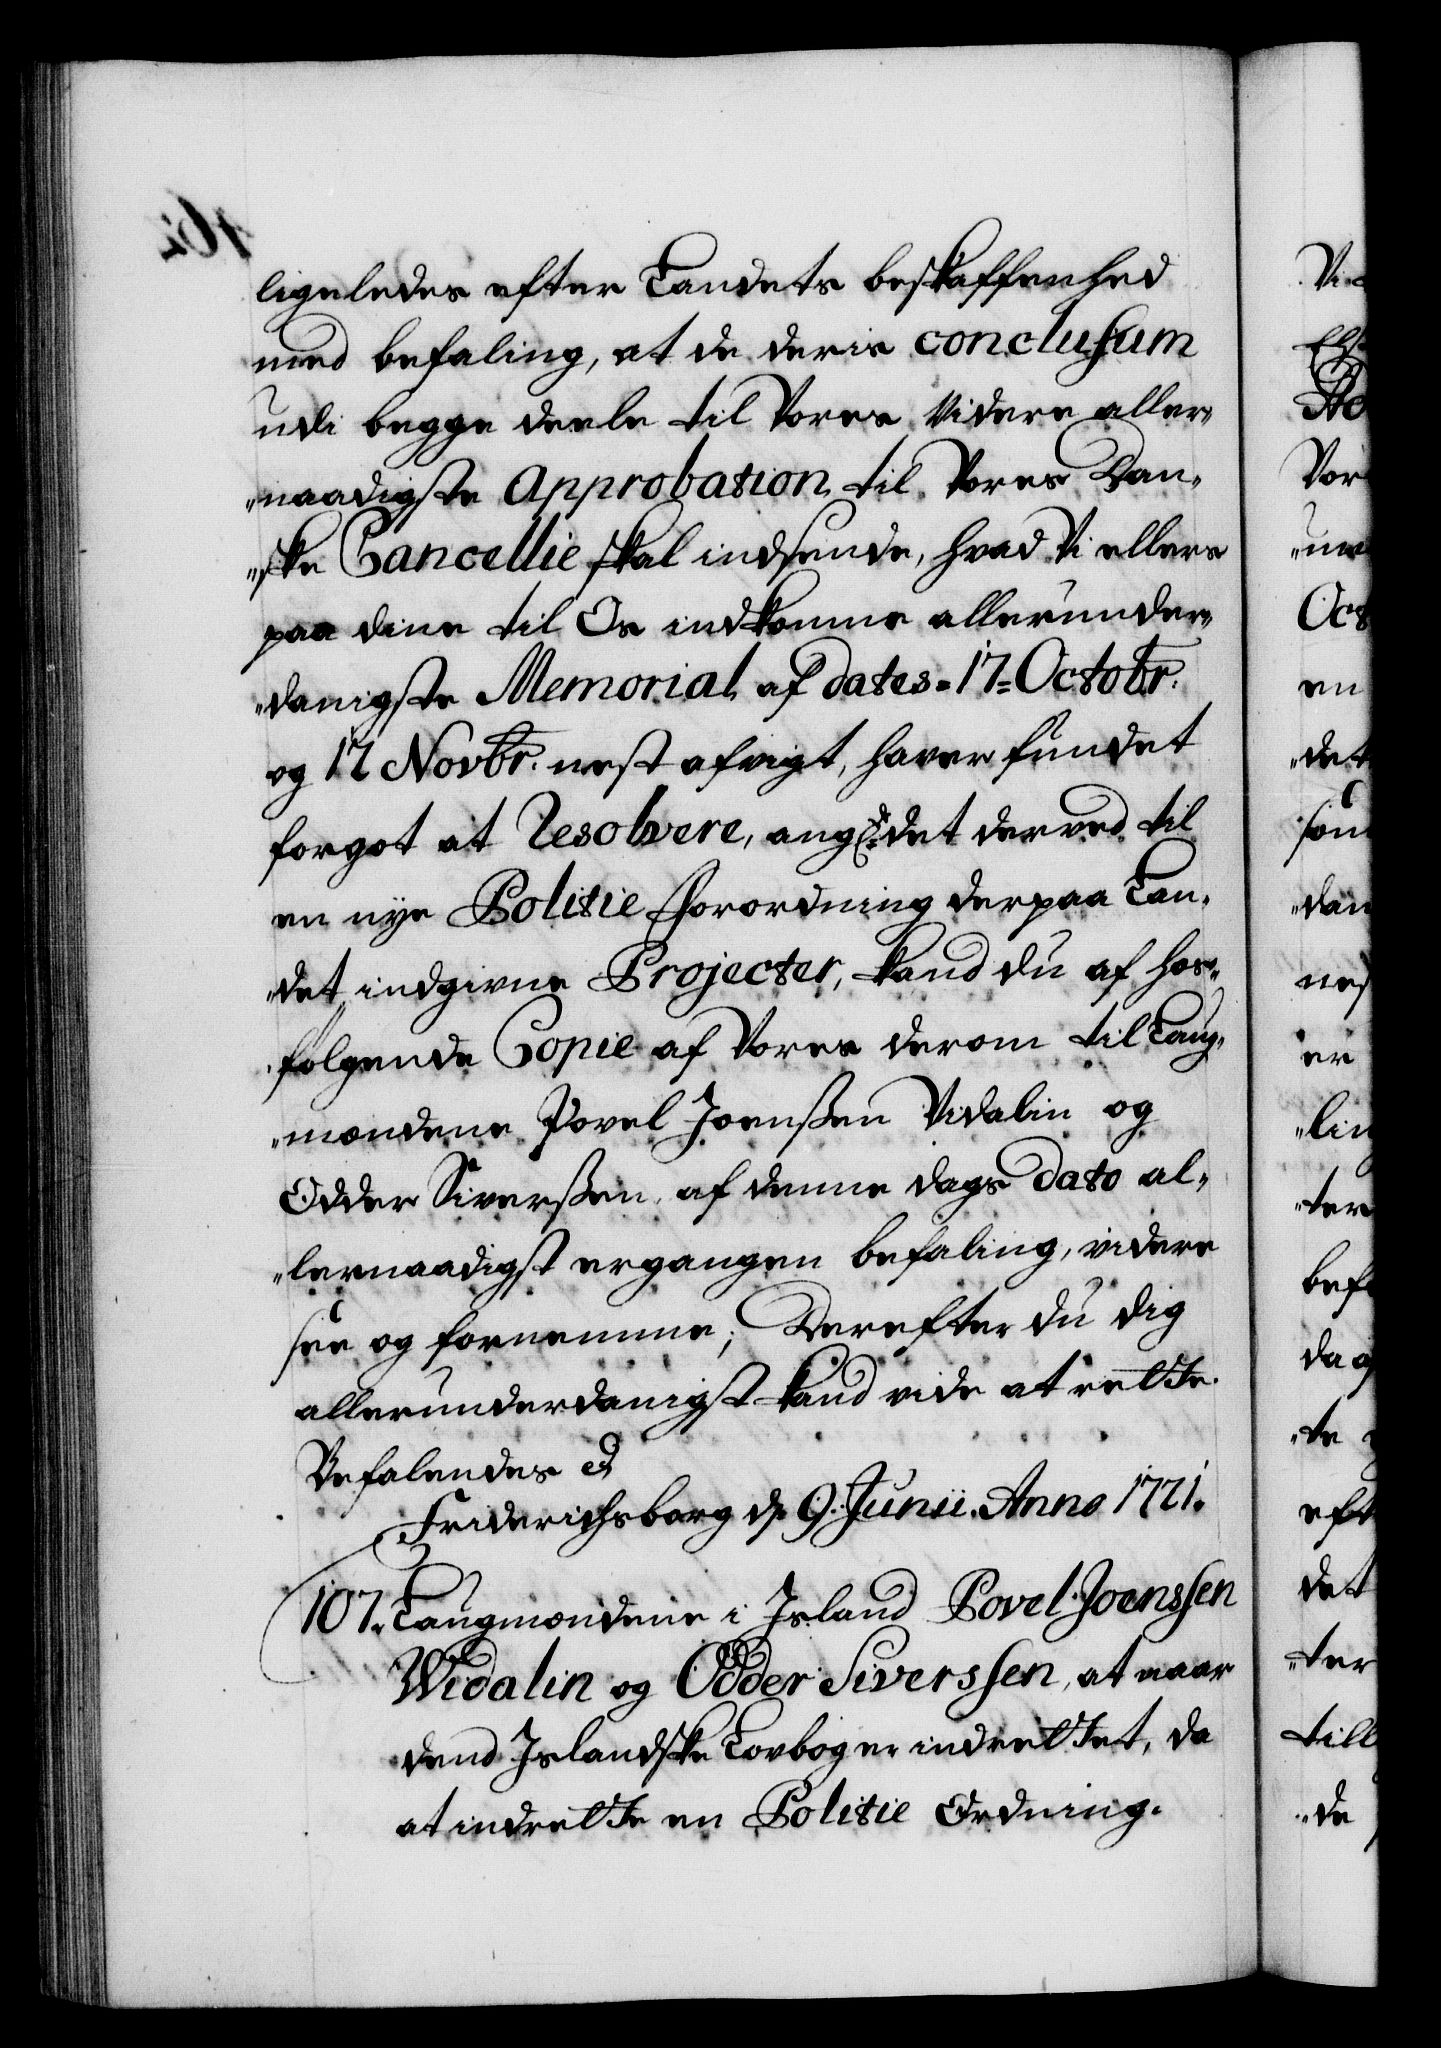 ligeledes efter Landets beskaffenhed
med befaling, at de deris conclusum
udi begge deele til Vores Videre aller„
„naadigste Approbation til Vores Dan„
„ske Cancellie skal indsende, hvad Vi ellers
paa dine til Os indkomne allerunder„
„danigste Memorial af dates 17 Octobr.
og 17 Novbr. nest afvigt, haver fundet
forgot at Resolvere, ang: det derved til
en nye Politie Forordning derpaa Lan„
„det indgivne Projecter, kand du af hos„
„følgende Copie af Vores derom til Laug„
„mændene Povel Joenßen Vidalin og
Odder Siverßen af denne dags Dato al„
„lernaadigst ergangen befaling, videre
see og fornemme; Derefter du dig
allerunderdanigst kand vide at rette.
Befalendes
Friderichsborg d. 9. Junii. Anno 1721.
107. Laugmændene i Island Povel Joenssen
Widalin og Odder Siverssen, at naar
dend Islandske Lovbog er indrettet, da
at indrette en Politie Ordning.